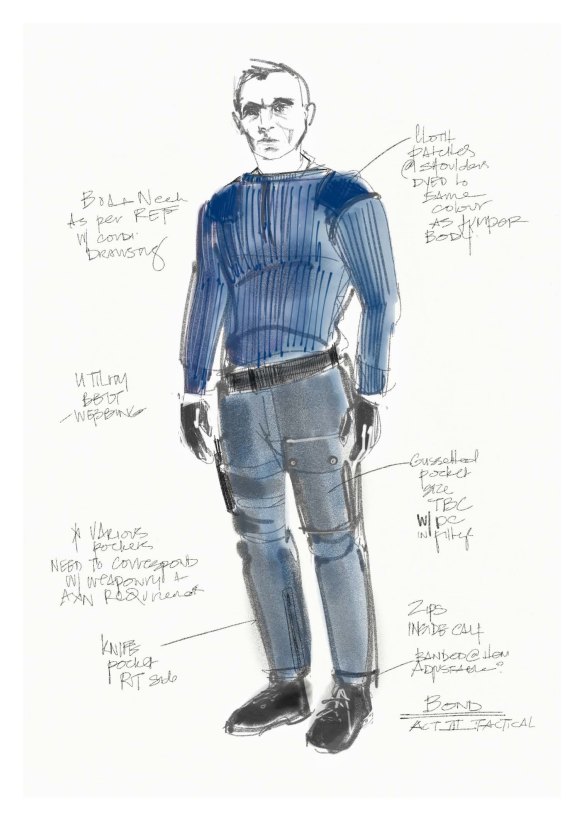 Cloth
patches
@ shoulders
dyed to
same
colour
as jumper
body.
Boat Neck
As per REF
w/ cord.
Drawstring
Utility
Belt
-Webbing
Gussetted
pocket
size
TBC
w/ PC
in fitt'g
* Various
pockets
need to correspond
w/ weaponry +
AXN requirement
Knife
pocket
R/T side
Zips
inside calf
Banded @ hem
Adjustable?
Bond
Act III Tactical